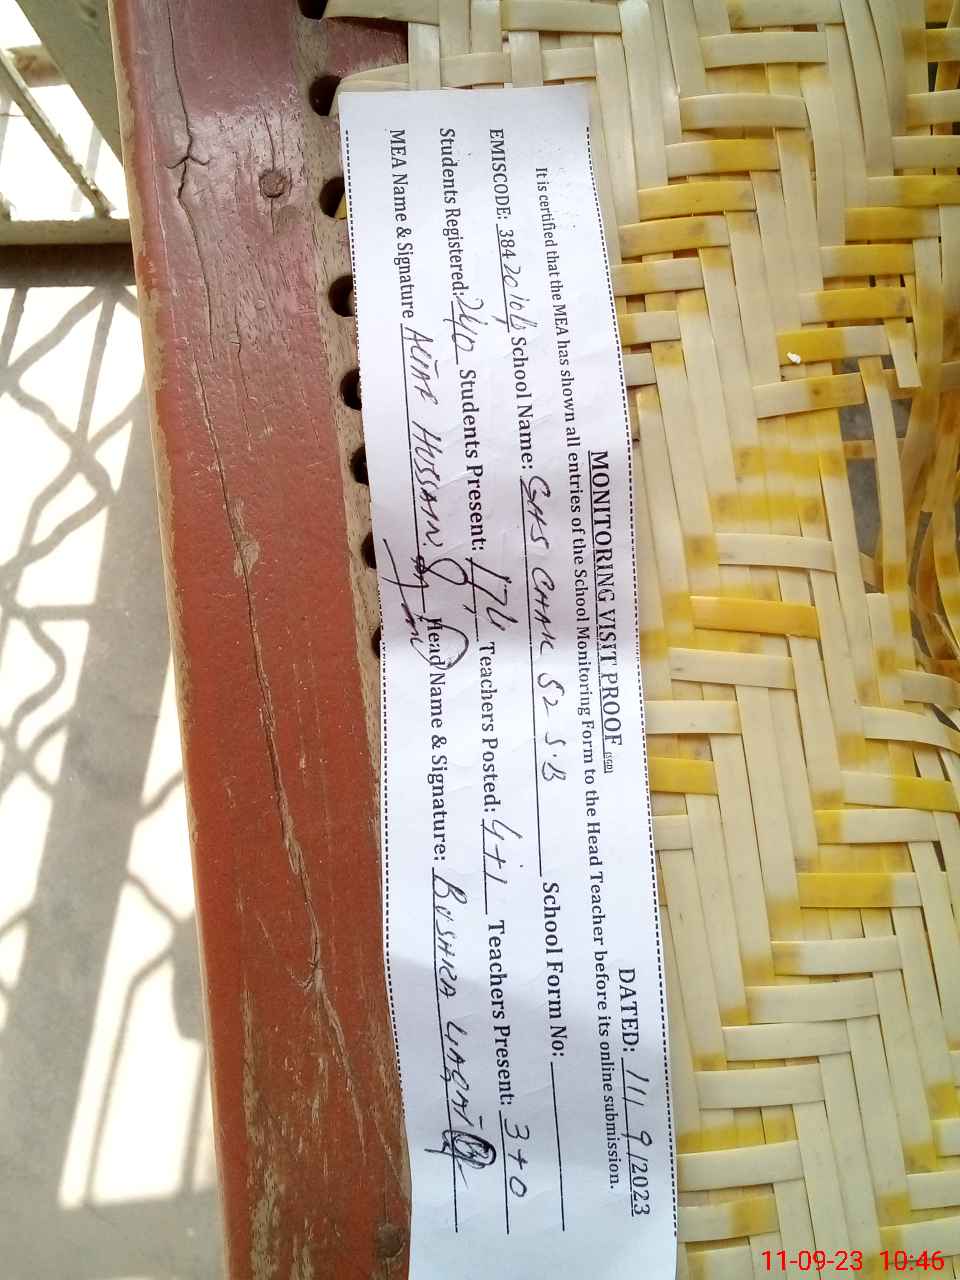 MONITORING VISIT PROOF (SGD) DATED: 11/9/2023
It is certified that the MEA has shown all entries of the School Monitoring Form to the Head Teacher before its online submission.
EMISCODE: School Name: GHS CHAK 52 S.B School Form No:
Students Registered: 240 Students Present: 176 Teachers Posted: 4+1 Teachers Present: 3+0
MEA Name & Signature HUSSAIN. Head Name & Signature: BUSHRA LIAQAT
11-09-23 10:46